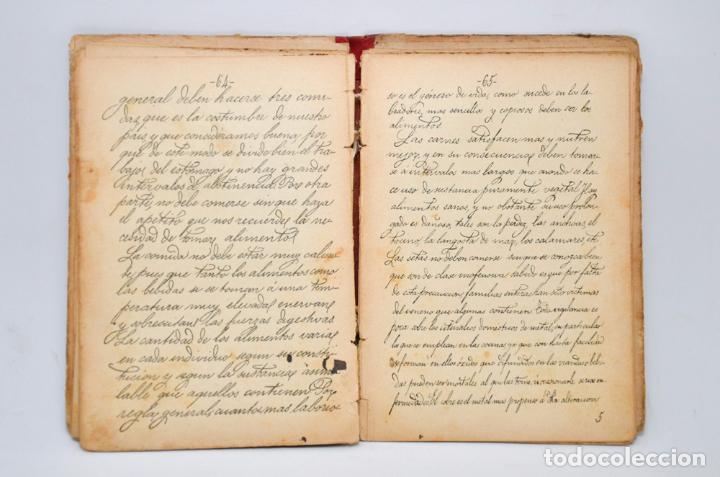 -64-
general deben hacerse tres comi-
das, que es la costumbre de nuestro
pais, y que consideramos buena, por
que de este modo se divide bien el tra-
bajo del estómago, y no hay grandes
intervalos de abstinencia. Por otra
parte, no debe comerse sin que haya
el apetito que nos recuerde la ne-
cesidad de tomar alimento.
La comida no debe estar muy caliente
pues que tanto los alimentos como
las bebidas si se toman á una tem-
peratura muy elevada, enervan
y debilitan las fuerzas digestivas.
La cantidad de los alimentos varia
en cada individuo segun su consti-
tucion y segun la sustancia asimi-
lable que aquellos contienen. Por
regla general, cuanto mas laborio-
-65-
so es el género de vida, como sucede en los la-
bradores, mas sencillos y copiosos deben ser los
alimentos.
Las carnes satisfacen mas y nutren
mejor, y en su consecuencia deben tomar-
se á intervalos mas largos que cuando se ha-
ce uso de sustancia puramente vegetal. Hay
alimentos sanos, y no obstante su uso prolon-
gado es dañoso, tales son la perdiz, las anchoas, el
tocino, la langosta de mar, los calamares, etc.
Las setas no deben comerse sin que se conozca bien
que son de clase inofensiva, sabido es que por falta
de esta precaucion familias enteras han sido victimas
del veneno que algunas contienen. Toda vigilancia es
poca sobre los utensilios domésticos de metal, en particular
los que se emplean en las cocinas, ya que con harta facilidad
se forman en ellos óxidos que difundidos en las viandas y bebi-
das pueden ser mortales al que las toma, ú ocasionarle serias en-
fermedades. El cobre es el metal mas propenso á esta alteracion
5
todocoleccion.net